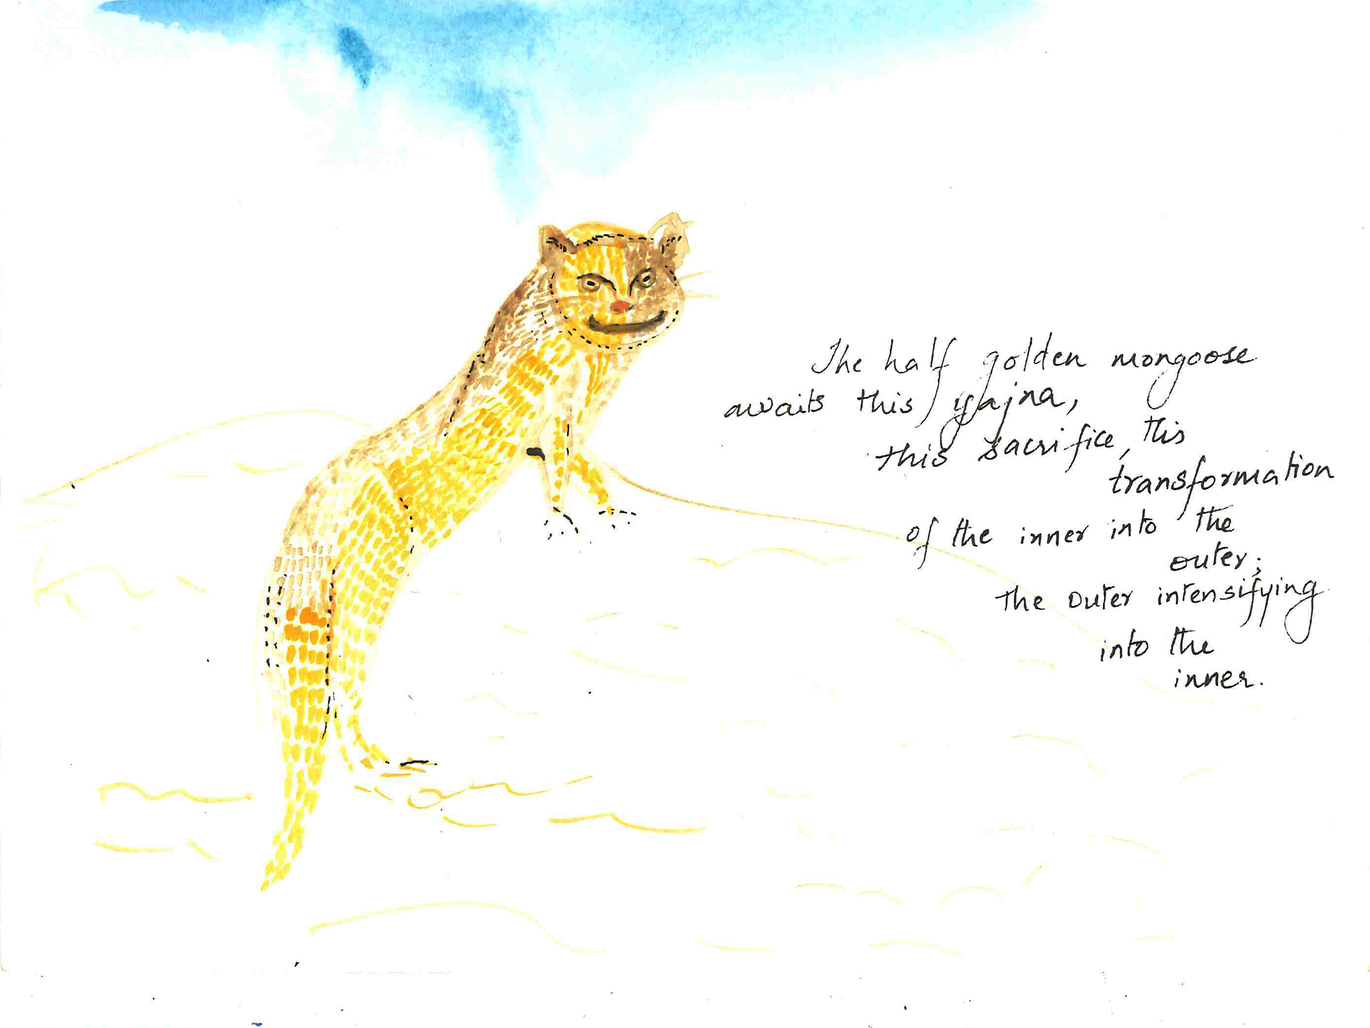 The half golden mongoose
awaits this yajna,
this sacrifice, this
transformation
of the inner into the
outer;
The outer intensifying
into the
inner.